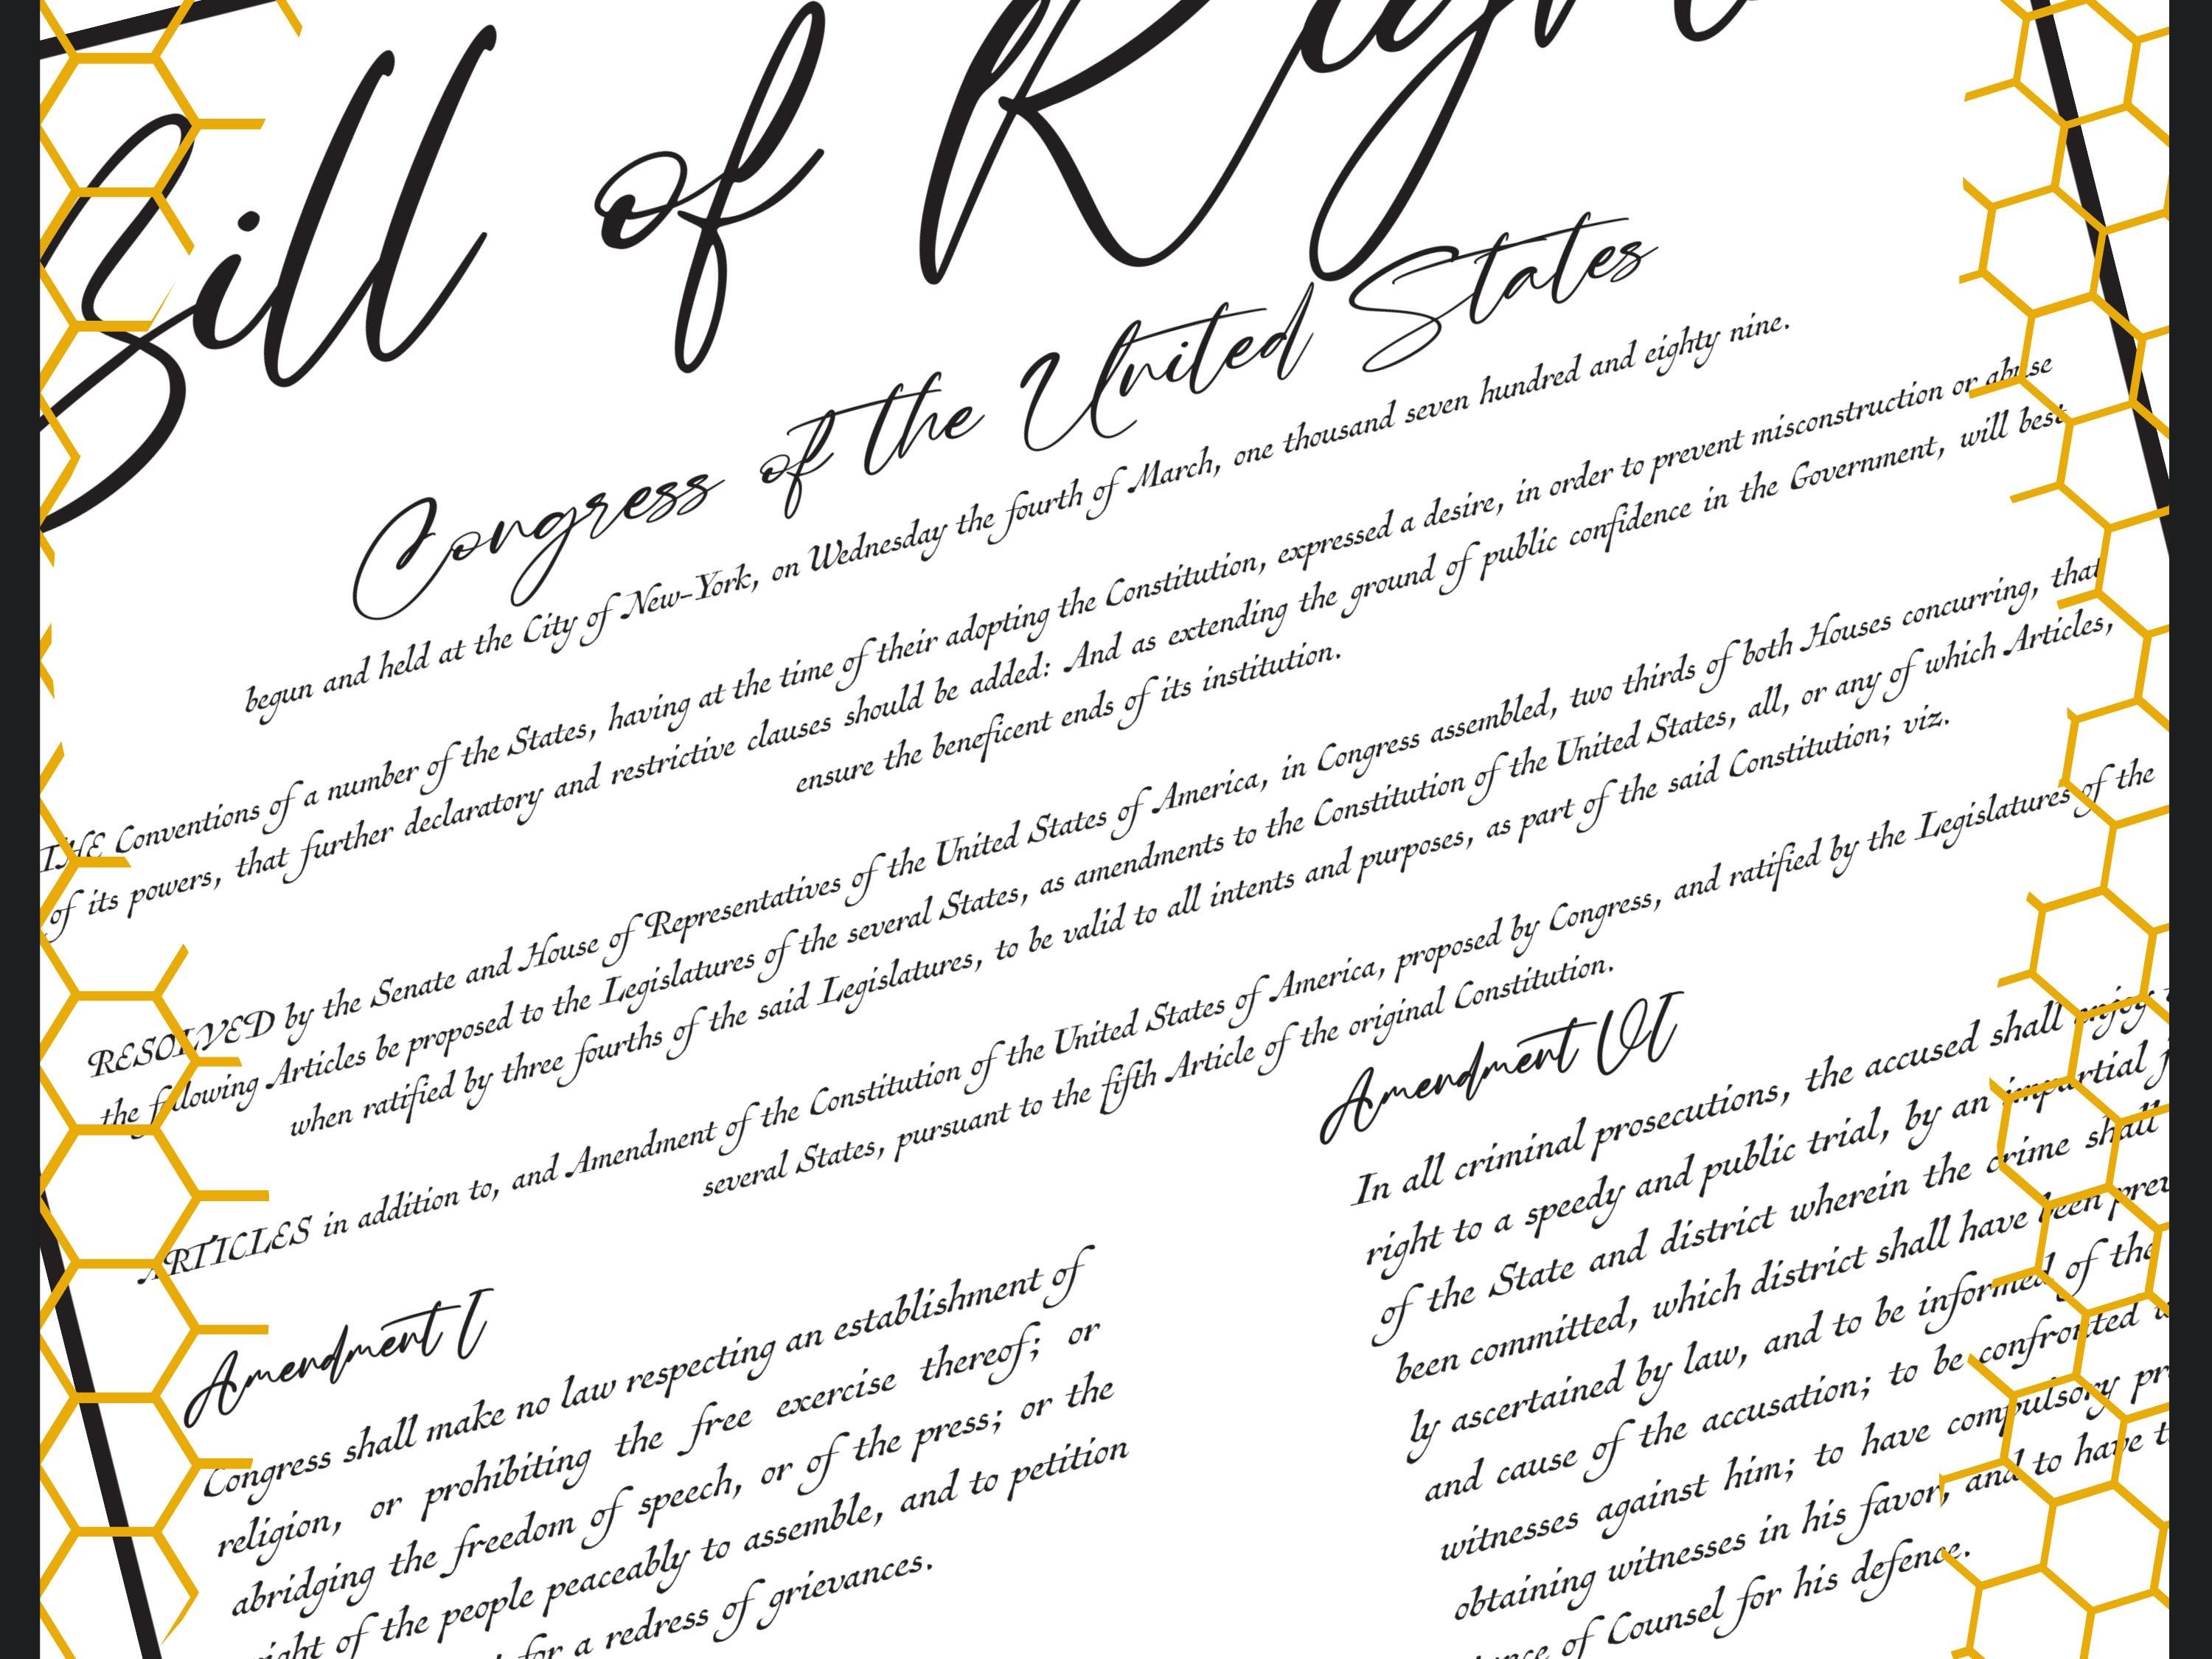 Bill of Righ
Congress of the United States
begun and held at the City of New-York, on Wednesday the fourth of March, one thousand seven hundred and eighty nine.
THE Conventions of a number of the States, having at the time of their adopting the Constitution, expressed a desire, in order to prevent misconstruction or abuse
of its powers, that further declaratory and restrictive clauses should be added: And as extending the ground of public confidence in the Government, will best
ensure the beneficent ends of its institution.
RESOLVED by the Senate and House of Representatives of the United States of America, in Congress assembled, two thirds of both Houses concurring, that
the following Articles be proposed to the Legislatures of the several States, as amendments to the Constitution of the United States, all, or any of which Articles,
when ratified by three fourths of the said Legislatures, to be valid to all intents and purposes, as part of the said Constitution; viz.
ARTICLES in addition to, and Amendment of the Constitution of the United States of America, proposed by Congress, and ratified by the Legislatures of the
several States, pursuant to the fifth Article of the original Constitution.
Amendment I
Congress shall make no law respecting an establishment of
religion, or prohibiting the free exercise thereof; or
abridging the freedom of speech, or of the press; or the
right of the people peaceably to assemble, and to petition
for a redress of grievances.
Amendment VI
In all criminal prosecutions, the accused shall enjoy
right to a speedy and public trial, by an impartial
of the State and district wherein the crime shall
been committed, which district shall have been prev
ly ascertained by law, and to be informed of the
and cause of the accusation; to be confronted
witnesses against him; to have compulsory pr
obtaining witnesses in his favor, and to have
of Counsel for his defence.